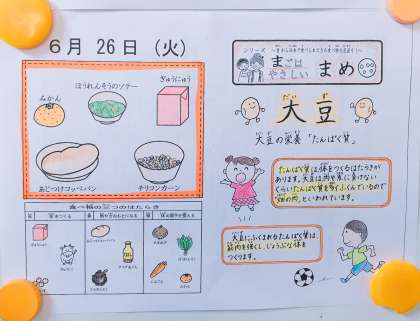 6月 26日 (火)
ほうれんそうのソテー
ぎゅうにゅう
みかん
あじつけコッペパン
チリコンカーン
食べ物の三つのはたらき
シリーズ
まごは
やさしい
まめ
だいず
大豆
大豆の栄養「たんぱく質」
たんぱく質は体をつくるはたらきが
あります。大豆は肉や魚に負けない
くらいたんぱく質を多くふくんでいるので
"畑の肉"といわれています。
大豆にふくまれるたんぱく質は
筋肉を強くし、じょうぶな体を
つくります。